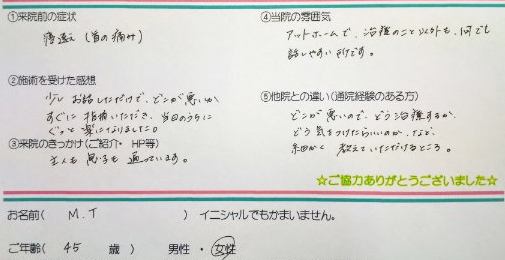 ①来院前の症状
寝違え(首の痛み)
②施術を受けた感想
少しお話しただけで、どこが悪いか
すぐに指摘いただき、当日のうちに
ぐっと楽になりました。
③来院のきっかけ(ご紹介・HP等)
主人も息子も通っています。
④当院の雰囲気
アットホームで、治療のこと以外も、何でも
話しやすいです。
⑤他院との違い(通院経験のある方)
どこが悪いので、どう治療するか、
どう気をつけたらいいのか、など、
細かく教えていただけるところ。
☆ご協力ありがとうございました☆
お名前( M.T ) イニシャルでもかまいません。
ご年齢( 45 歳) 男性・女性